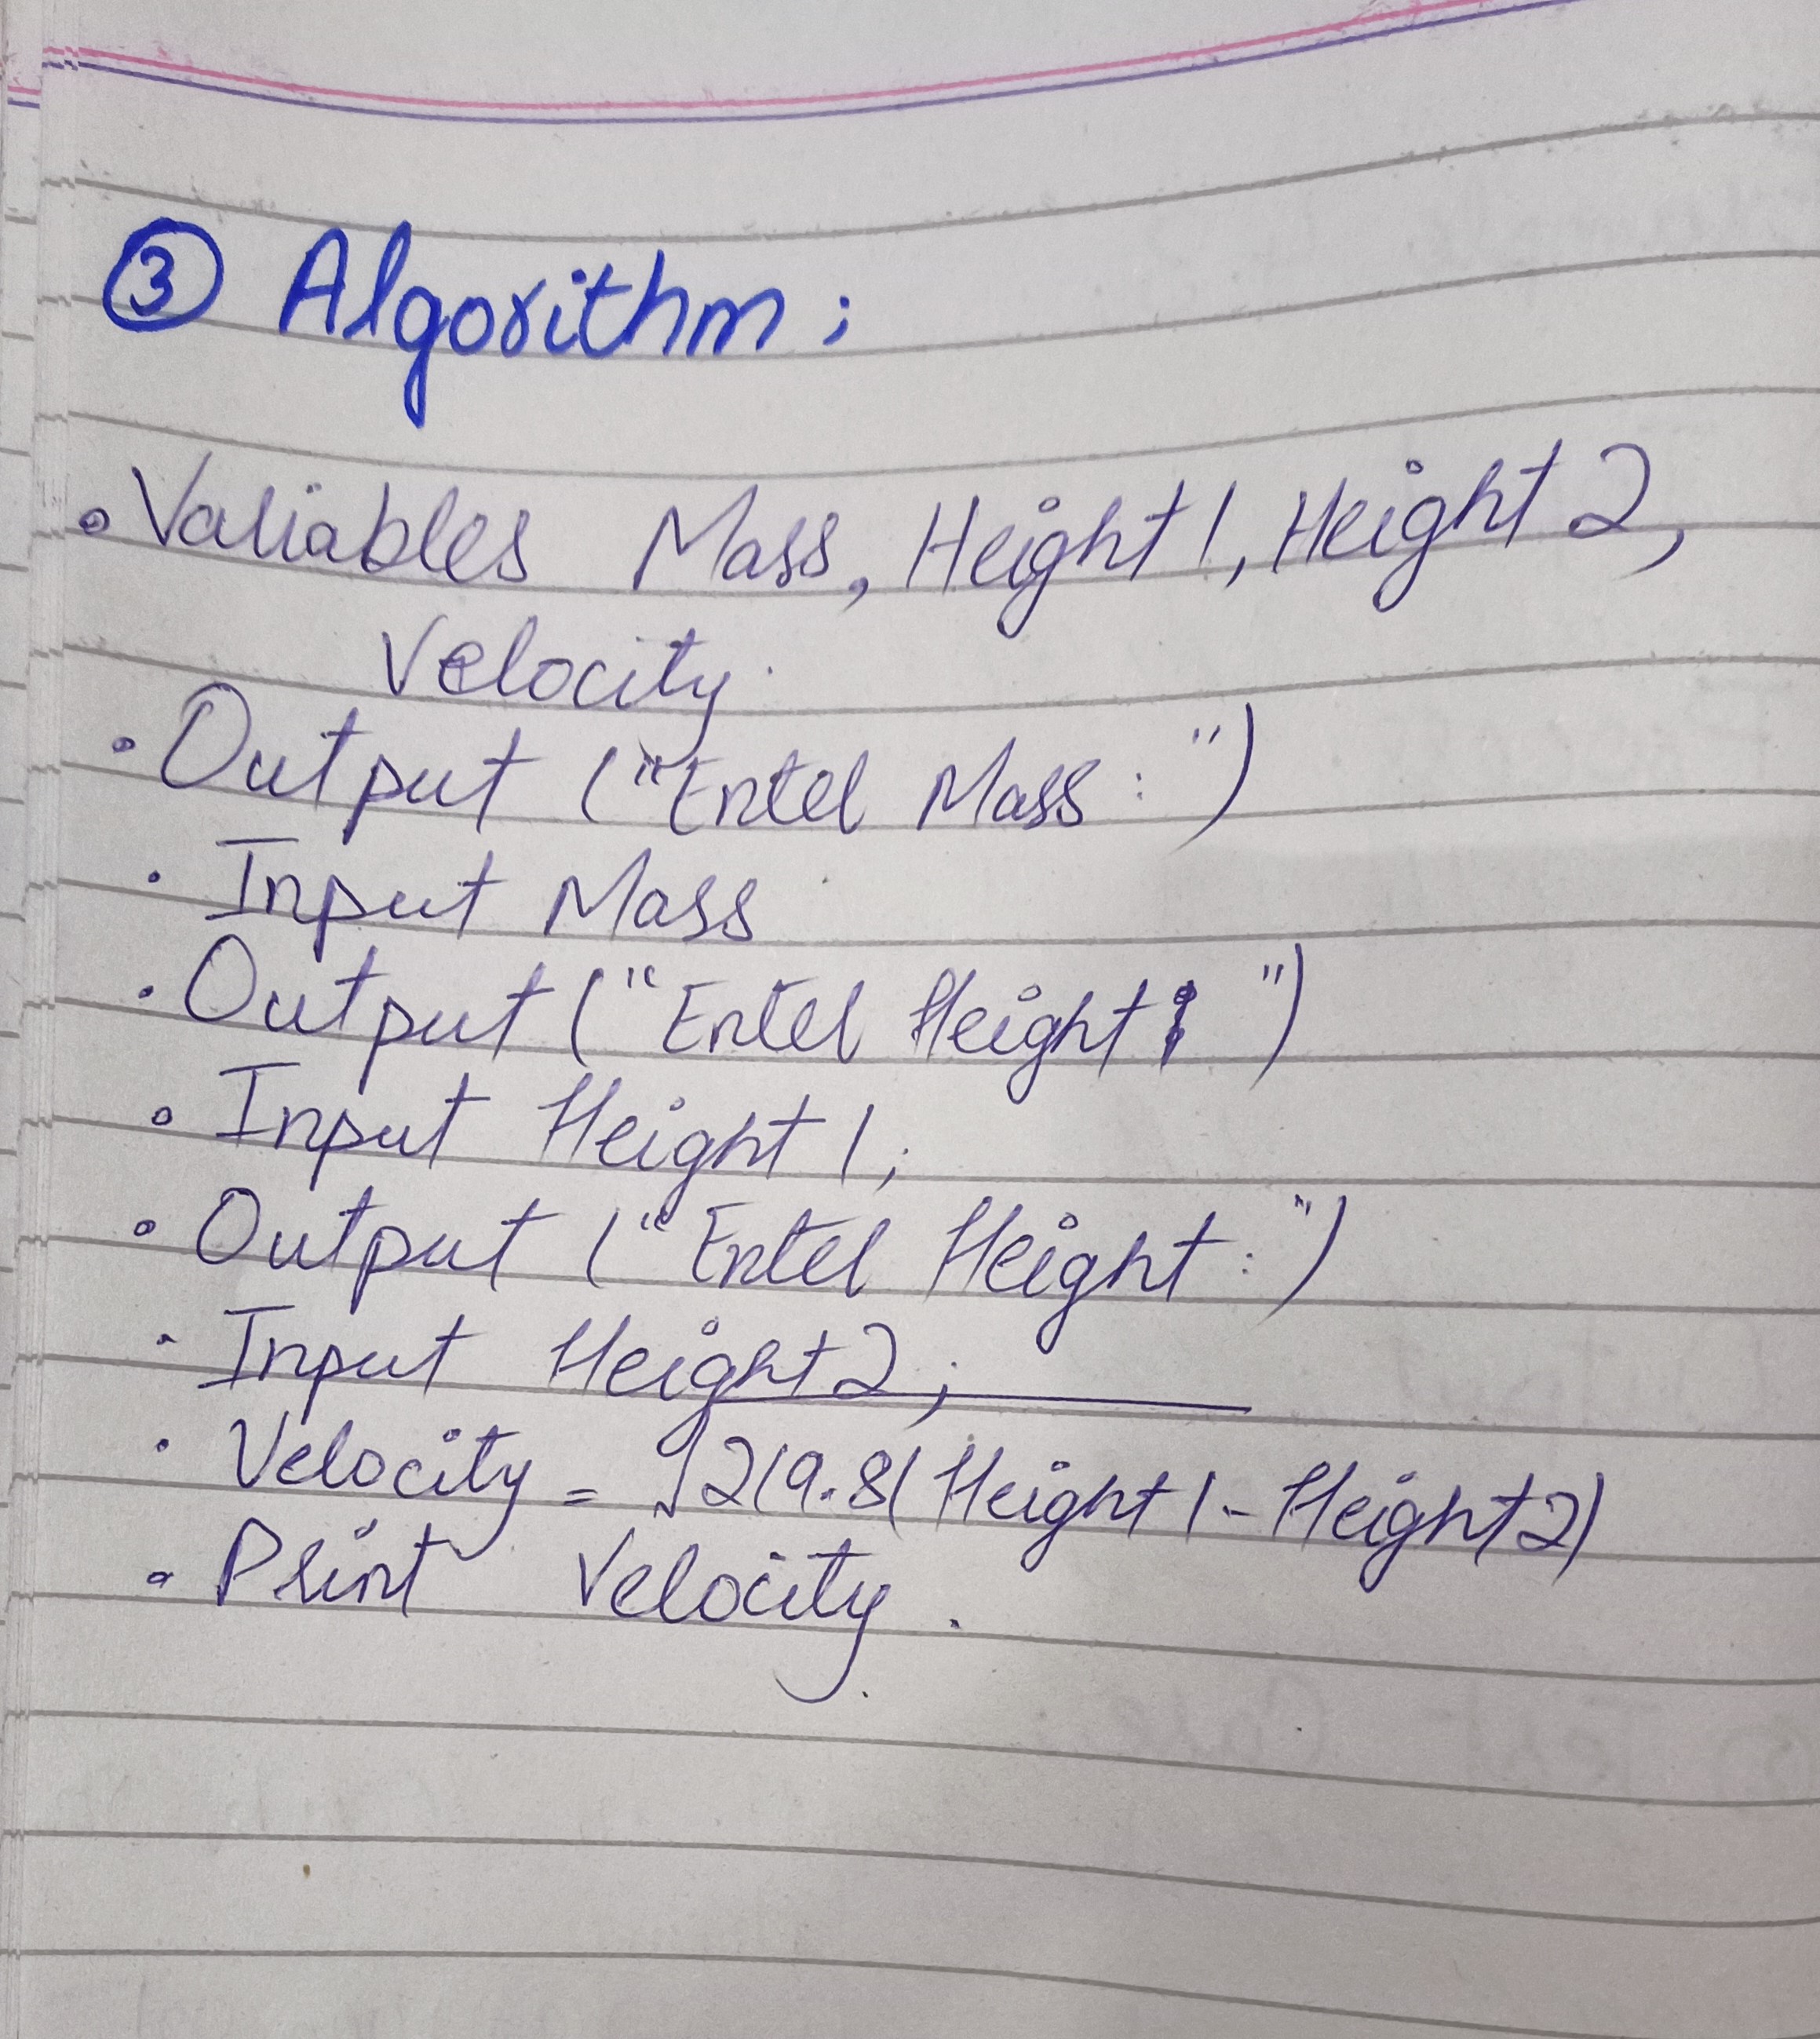 ③ Algorithm :
• Variables Mass, Height 1, Height 2,
Velocity.
• Output ("Enter Mass : ")
• Input Mass
• Output ("Enter Height : ")
• Input Height 1;
• Output ("Enter Height : ")
• Input Height 2;
• Velocity = √2(9.8(Height 1 - Height 2)
• Print Velocity.